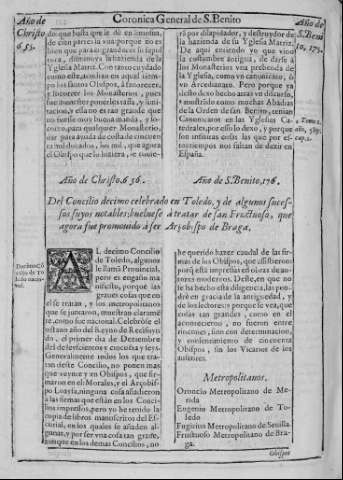 Año de
Christo
653.
Coronica General de S. Benito
Año de
S. Beni
to, 173.
do: que basta que le dè en limosna,
de cien partes la vna porque no es
bien que para agrandecer su sepul
tura, diminuya la hazienda de la
Yglesia Matriz. Con tanto cuydado
como este, tenian en aquel siem
pos los santos Obispos, à fauorecer,
y socorrer los Monasterios, pues
fue menester ponerles tassa, y limi-
tacion, y està no era tan grande que
no fuesse muy buena manda, y so-
corro, para qualquier Monasterio,
dar para ayuda de costa de cincuen
ta mil ducados, los mil, que agora
el Obispo que lo hiziere, le conde-
nàra por dilapidador, y destruydor de
la hazienda de su Yglesia Matriz.
De aqui tambien entiendo yo que vino
la costumbre antigua, de darse à
los Monasterios vna prebenda de
la Yglesia, como vn canonicato, ò
vn Arcedianato. Pero porque ya
se ha dicho desto hecho arriba discurso,
y mostrado como muchas Abadias
de la Orden de san Benito, tenian
Canonicatos en las Yglesias Ca-
tedrales, por esso lo dexo, y porque
son infinitas cosas las que por es-
tos tiempos nos faltan de dezir en
España.
Año de Christo, 656.
Año de S. Benito, 176.
Del Concilio decimo celebrado en Toledo, y de algunos suces-
sos suyos notables: bueluese à tratar de san Fructuoso, que
agora fue promouido à ser Arçobispo de Braga.
AL decimo Concilio
de Toledo, algunos
le llamã Prouincial,
pero es engaño ma
nifiesto, porque las
grandes cosas que en
el se tratan, y los metropolitanos
que se juntaron, muestran claramẽ
te, como fue nacional. Celebròse el
octauo año del Reyno de Recisuin
do, el primer dia de Deziembre
Era de seyscientos y nouẽta y seys.
Generalmente todos los que tra-
tan deste Concilio, no ponen mas
que veynte y vn Obispos, que fir-
maron en el: Morales, y el Arçobispo
Loaysa, ninguna cosa añadieron
a las firmas que estàn en los Conci-
lios impressos, pero yo he tenido la
copia de los libros manuscritos del Es-
curial, en los quales se añaden al-
gunas, y por ser vna cosa tan graue,
aunque en los demas Concilios, no
he querido hazer caudal de las fir-
mas de los Obispos, que assistieron
por estar impressas en obras de au-
tores modernos. Como en este que no se
ha hecho esta diligencia, las pon-
dre en gracia de la antiguedad, y
de los lectores: y porque se vea, que
cosas tan grandes, como en el
acontecieron, no fueron entre
rincones, sino con determinacion,
y consentimiento de cincuenta
Obispos, sin los Vicarios de los
ausentes.
Metropolitanos.
Oroncio Metropolitano de Me-
rida
Eugenio Metropolitano de To-
ledo
Fugitiuo Metropolitano de Seuilla.
Fructuoso Metropolitano de Bra-
ga.
Obispos